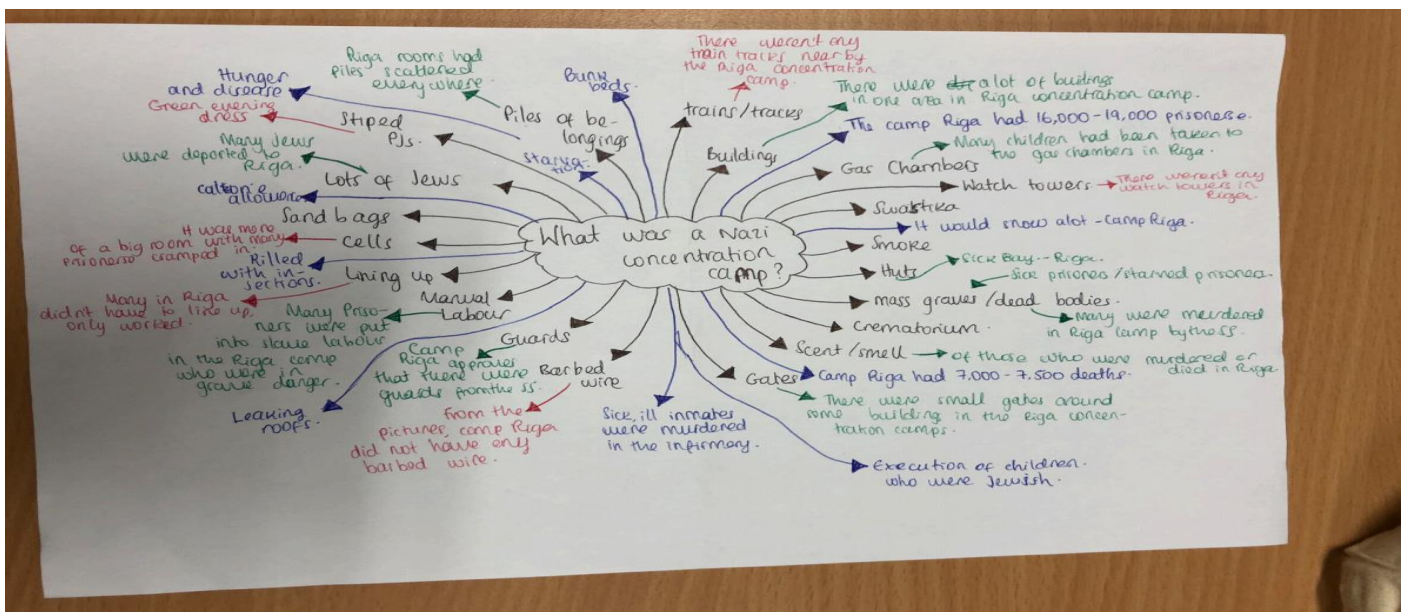 What was a Nazi
concentration
camp?
Hunger
and disease
Riga rooms had
piles scattered
everywhere.
Bunk
beds.
There weren't any
train tracks nearby
the Riga concentration
camp.
trains/tracks
There were alot of buildings
in one area in Riga concentration camp.
Buildings
The camp Riga had 16,000-19,000 prisonerse.
Gas Chambers
Many children had been taken to
the gas chambers in Riga.
Watch towers
There weren't any
watch towers in
Riga.
Swastika
It would snow alot - camp Riga.
Smoke
Huts
Sick Bay - Riga.
Sick prisoners/starved prisoners.
mass graves/dead bodies.
Many were murdered
in Riga camp by the SS.
Crematorium.
Scent/smell
of those who were murdered or
died in Riga
Camp Riga had 7,000-7,500 deaths.
Gates
There were small gates around
some building in the Riga concen-
tration camps.
Execution of children
who were Jewish.
Sick, ill inmates
were murdered
in the infirmery.
Barbed
wire
from the
pictures, camp Riga
did not have any
barbed wire.
Guards
Camp
Riga approves
that there were
guards from the SS.
Leaking
roofs.
Manual
Labour
Many Priso-
ners were put
into slave labour
in the Riga camp
who were in
grave danger.
Lining up
Many in Riga
didn't have to line up
only worked.
Rilled
with in-
sections.
Cells
It was more
of a big room with many
prisonerse cramped in.
Sand bags
allowence
Lots of Jews
Many Jews
were deported to
Riga.
Stiped
PJs.
Green evening
dress
starva-
tion
Piles of be-
longings